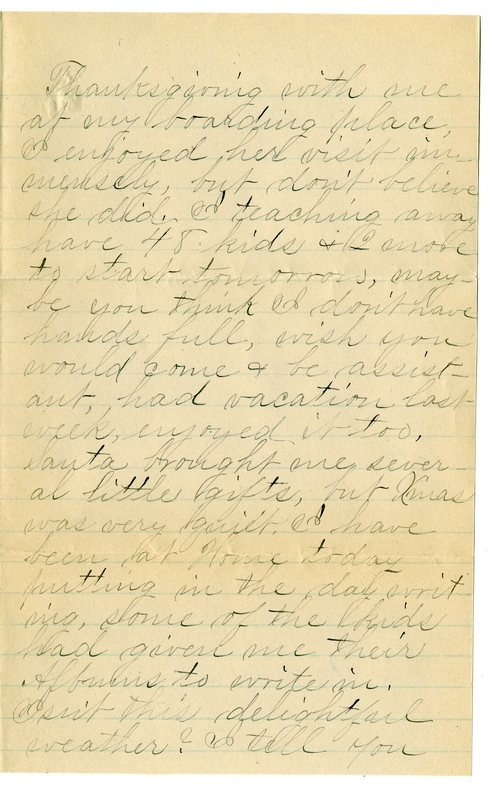 Thanksgiving with me
at my boarding place,
I enjoyed her visit im-
mensely, but don't believe
she did. I teaching away
have 48 kids & 2 more
to start tomorrow, may-
be you think I don't have
hands full, wish you
would come & be assist-
ant, had vacation last
week, enjoyed it too,
Santa brought me sever-
al little gifts, but Xmas
was very quiet. I have
been at Home today
putting in the day writ
ing, some of the kids
had given me their
Albums to write in.
Isn't this delightful
weather? I tell you